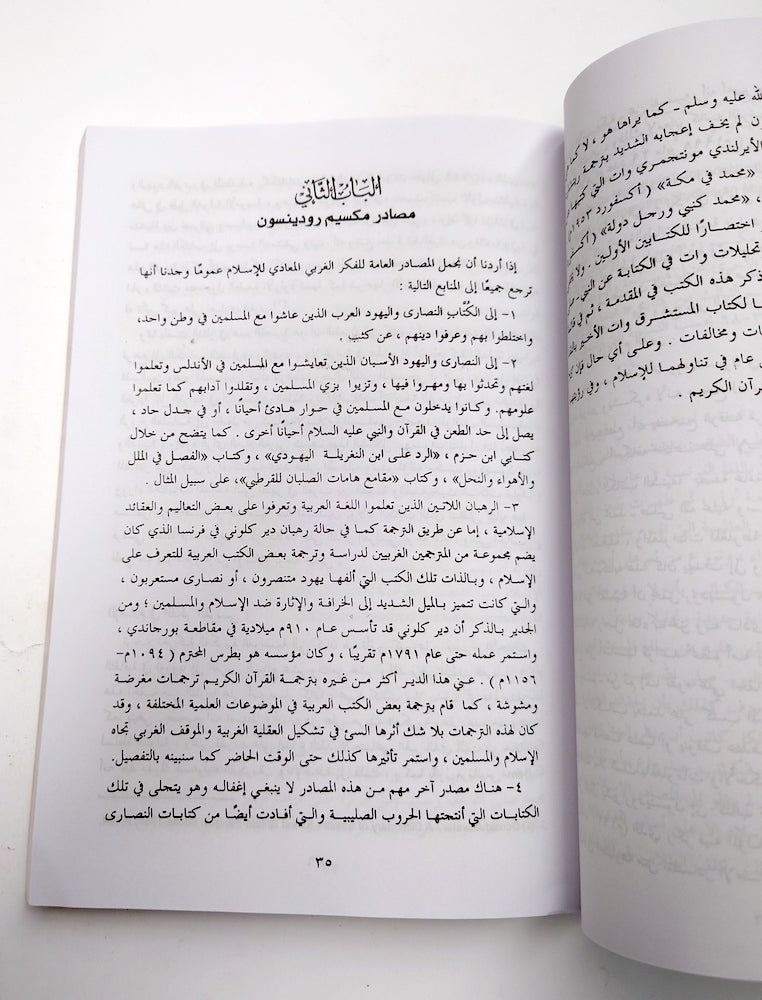 الله عليه وسلم - كما يراها هو ، لا كما
لم يخف إعجابه الشديد بترجمة
الأيرلندي مونتجمري وات التي كتبها
«محمد في مكة» ( أكسفورد ١٩٥٣م
، «محمد كنبي ورجل دولة» ( أكسفو
اختصارًا للكتابين الأولين . ولا
تحليلات وات في الكتابة عن النبي
ذكر هذه الكتب في المقدمة ، ثم في
لكتاب المستشرق وات الأخير
ومخالفات . وعلى أي حال فإن
عام في تناولهما للإسلام ، وفي
القرآن الكريم .
الباب الثاني
مصادر مكسيم رودينسون
إذا أردنا أن نجمل المصادر العامة للفكر الغربي المعادي للإسلام عمومًا وجدنا أنها
ترجع جميعًا إلى المنابع التالية :
١- إلى الكُتَّاب النصارى واليهود العرب الذين عاشوا مع المسلمين في وطن واحد،
واختلطوا بهم وعرفوا دينهم ، عن كثب .
٢- إلى النصارى واليهود الأسبان الذين تعايشوا مع المسلمين في الأندلس وتعلموا
لغتهم وتحدثوا بها ومهروا فيها ، وتزيوا بزي المسلمين ، وتقلدوا آدابهم كما تعلموا
علومهم. وكانوا يدخلون مع المسلمين في حوار هادئ أحيانًا ، أو في جدل حاد ،
يصل إلى حد الطعن في القرآن والنبي عليه السلام أحيانًا أخرى . كما يتضح من خلال
كتابي ابن حزم ، «الرد على ابن النغريلة اليهودي» ، وكتاب «الفصل في الملل
والأهواء والنحل» ، وكتاب «مقامع هامات الصلبان للقرطبي»، على سبيل المثال .
٣- الرهبان اللاتين الذين تعلموا اللغة العربية وتعرفوا على بعض التعاليم والعقائد
الإسلامية ، إما عن طريق الترجمة كما في حالة رهبان دير كلوني في فرنسا الذي كان
يضم مجموعة من المترجمين الغربيين لدراسة وترجمة بعض الكتب العربية للتعرف على
الإسلام ، وبالذات تلك الكتب التي ألفها يهود متنصرون ، أو نصارى مستعربون ،
والتي كانت تتميز بالميل الشديد إلى الخرافة والإثارة ضد الإسلام والمسلمين ؛ ومن
الجدير بالذكر أن دير كلوني قد تأسس عام ٩١٠م ميلادية في مقاطعة بورجاندي ،
واستمر عمله حتى عام ١٧٩١م تقريبًا ، وكان مؤسسه هو بطرس المحترم ( ١٠٩٤م-
١١٥٦م ) . عني هذا الدير أكثر من غيره بترجمة القرآن الكريم ترجمات مغرضة
ومشوشة ، كما قام بترجمة بعض الكتب العربية في الموضوعات العلمية المختلفة ، وقد
كان لهذه الترجمات بلا شك أثرها السئ في تشكيل العقلية الغربية والموقف الغربي تجاه
الإسلام والمسلمين ، واستمر تأثيرها كذلك حتى الوقت الحاضر كما سنبينه بالتفصيل.
٤- هناك مصدر آخر مهم من هذه المصادر لا ينبغي إغفاله وهو يتجلى في تلك
الكتابات التي أنتجتها الحروب الصليبية والتي أفادت أيضًا من كتابات النصارى
٣٥